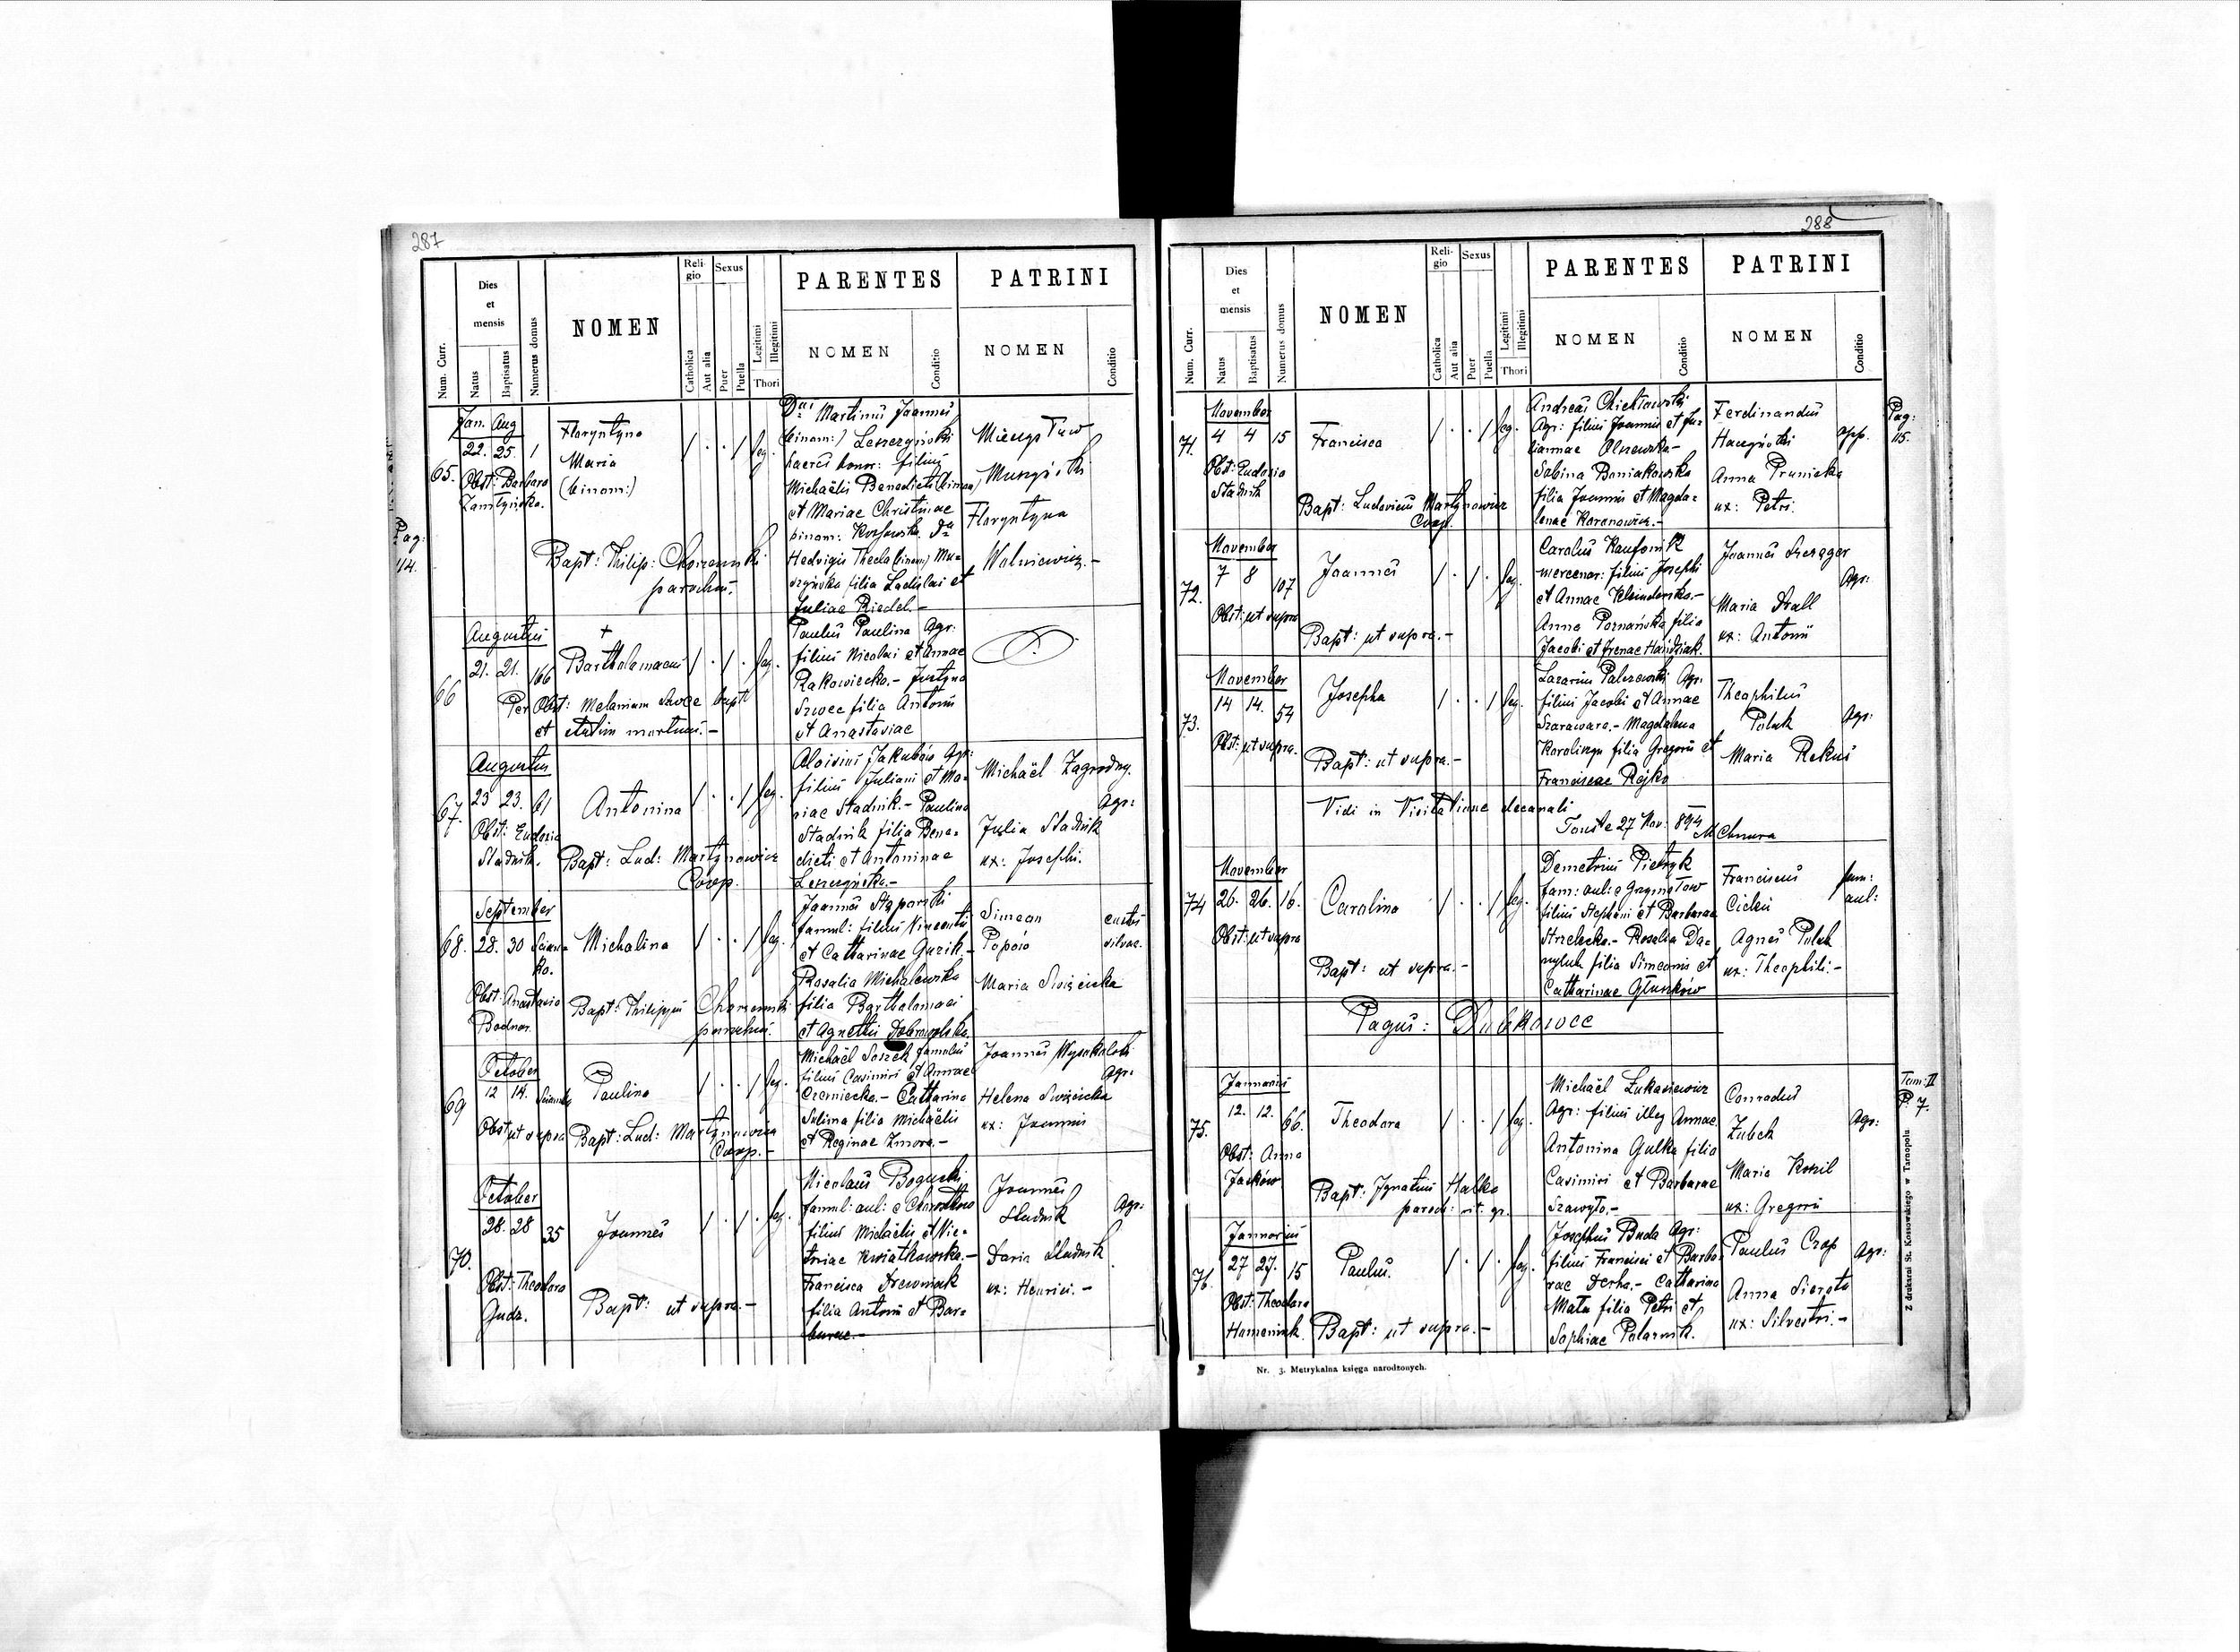 287
Num. Curr.
Dies et mensis
Natus
Baptisatus
Numerus domus
NOMEN
Religio
Catholica
Aut alia
Sexus
Puer
Puella
Legitimi
Illegitimi
Thori
PARENTES
NOMEN
Conditio
PATRINI
NOMEN
Conditio
Pag: 44.
65.
Jan. Aug
22. 25. 1
Obst: Barbara
Floryntyna
Maria
(binom:)
Bapt: Philip: Chorzemski
parochus.
/ . . / leg.
Martinus Joannes
(binom:) Leszczyński
haeres honor: filius
Michaëlis Benedicti (binom)
et Mariae Christinae
binom: Kozłowska. Dna
Hedvigis Thecla (binom) Mu=
szyńska filia Ladislai et
Juliae Riedel.-
Mieczysław
Muszyński
Floryntyna
Wolniewicz.-
66
Augustus
21. 21. 166
+
Bartholomaeus
Per Obst: Melaniam Szwec bapt
et statim mortuus.-
/ . / . leg.
Paulus Paulina Agr:
filius Nicolai et Annae
Rakowiecka.- Justyna
Szwec filia Antonii
et Anastasiae
67.
Augustus
23 23. 61
Obst: Eudoxia
Stadnik.
Antonina
Bapt: Lud: Martynowicz
Coop.
/ . . / leg.
Aloisius Jakubów Agr:
filius Juliani et Ma=
riae Stadnik.- Paulina
Stadnik filia Bene=
dicti et Antoninae
Leszczyńska.-
Michaël Zagrodny.
Agr:
Julia Stadnik
ux: Josephi.
68.
September
28. 30
Obst: Anastasia
Bodnar.
Michalina
Bapt: Philippus Chorzemski
parochus.
/ . . / leg.
Joannes
famul: filius Vincentii
et Catharinae Guzik.-
Rosalia Michalewska
filia Bartholomaei
et Agnetis Dobrowolska.
Simeon custos
silvae.
Maria Swięcicka
69
October
12 14.
Obst ut supra
Paulina
Bapt: Lud: Martynowicz
Coop.-
/ . . / leg.
Michaël Soszek famulus
filius Casimiri et Annae
Czerniecka.- Catharina
Salima filia Michaëlis
et Reginae Zmora.-
Joannes Wysokolski
Agr:
Helena Swięcicka
ux: Joannis
70.
October
28. 28 35
Obst: Theodora
Gudz.
Joannes
Bapt: ut supra.-
/ . / . leg.
Nicolaus Bogucki
famul: aul: e Chorostków
filius Michaëlis et Vic=
toriae Kwiatkowska.-
Francisca Drewniak
filia Antonii et Bar=
barae.-
Joannes
Sładnik
Agr:
Daria Sładnik
ux: Henrici.-
288
Num. Curr.
Dies et mensis
Natus
Baptisatus
Numerus domus
NOMEN
Religio
Catholica
Aut alia
Sexus
Puer
Puella
Legitimi
Illegitimi
Thori
PARENTES
NOMEN
Conditio
PATRINI
NOMEN
Conditio
Pag: 115.
71.
November
4 4 15
Obst: Eudoxia
Stadnik
Francisca
Bapt: Ludovicus Martynowicz
Coop.
/ . . / leg.
Andreas
Agr: filius Joannis et Ju=
liannae Olszewska.-
Sabina Boniakowska
filia Joannis et Magda=
lenae Koronowicz.-
Ferdinandus
Anna Prunicka
ux: Petri.
72.
November
7 8 107
Obst: ut supra
Joannes
Bapt: ut supra.-
/ . / . leg.
Carolus
mercenar: filius Josephi
et Annae
Anna Poznańska filia
Jacobi et Irenae
Joannes
Agr:
Maria Drall
ux: Antonii
73.
November
14 14. 54
Obst: ut supra.
Josepha
Bapt: ut supra.-
/ . . / leg.
Lazarius Palczewski Agr:
filius Jacobi et Annae
Szarawara.- Magdalena
Karolinga filia Gregorii et
Franciscae Rejko
Theophilus
Polak
Agr:
Maria Rekus
Vidi in Visitatione decanali
Touste 27 Nov: 894
74
November
26. 26. 16.
Obst: ut supra
Carolina
Bapt: ut supra.-
/ . . / leg.
Demetrius Pietryk
fam: aul: e Grzymałow
filius Stephani et Barbarae
Strzelecka.- Rosalia Da=
nyluk filia Simeonis et
Catharinae Głuszków
Franciscus fam:
aul:
Agnes Polak
ux: Theophili:-
Pagus: Dubkowce
Tom: II
P. 7.
75.
Januarius
12. 12. 66.
Obst: Anna
Jacków
Theodora
Bapt: Ignatius Halko
paroch: rit: gr.
/ . . / leg.
Michaël Łukasiewicz
Agr: filius illeg Annae.
Antonina Gulka filia
Casimiri et Barbarae
Szawyło.-
Conradus
Zubek
Agr:
Maria Kozil
ux: Gregorii
76.
Januarius
27 27. 15
Obst: Theodora
Paulus.
Bapt: ut supra.-
/ . / . leg.
Josephus Buda Agr:
filius Francisci et Barba=
rae Derha.- Catharina
Mata filia Petri et
Sophiae Polarnik.
Paulus Czop Agr:
Anna Sierota
ux: Silvestri.-
Nr. 3. Metrykalna księga narodzonych.
Z drukarni St. Kossowskiego w Tarnopolu